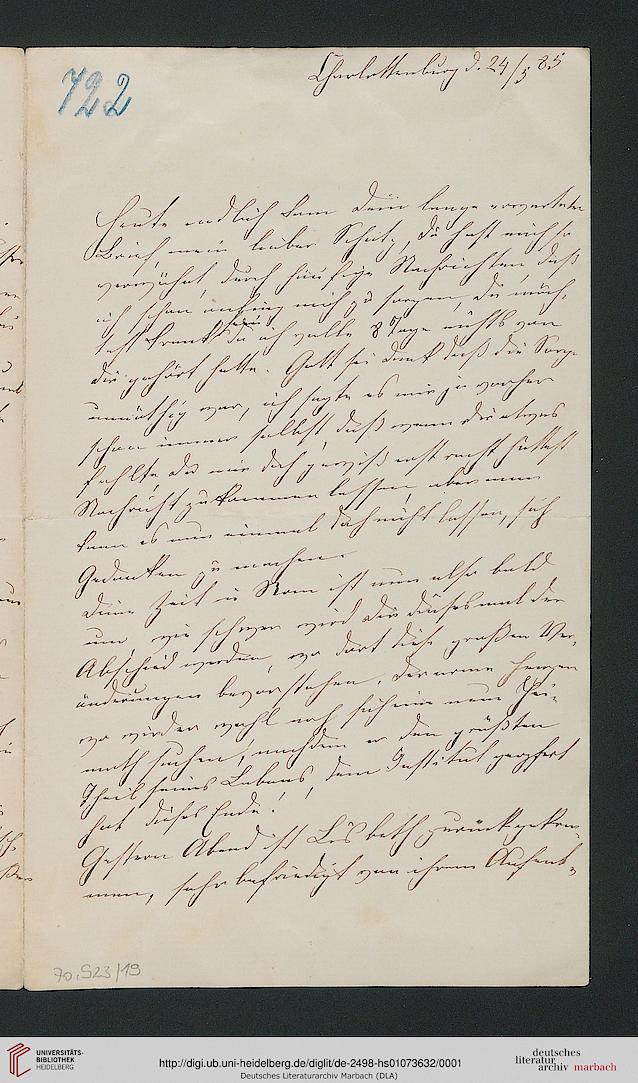 722
Charlottenburg d. 24/5 85
Heute endlich kam Dein lange erwarteter
Brief, mein lieber Schatz, Du hast mich so
verwöhnt durch häufige Nachrichten, daß
ich schon anfing mich zu sorgen, Du möch-
test krank sein, da ich volle 8 Tage nichts von
dir gehört hatte. Gott sei Dank daß die Sorge
unnöthig war, ich sagte es mir ja vorher
schon immer selbst, daß wenn dir etwas
fehlte du mir doch gewiß erst recht hättest
Nachricht zukommen lassen, aber man
kann es nun einmal doch nicht lassen, sich
Gedanken zu machen.
Deine Zeit in Rom ist nun also bald
um wie schwer wird dir diesesmal der
Abschied werden, wo dort diese großen Ver-
änderungen bevorstehen. Der arme Henzen
wo wird er wohl noch sich eine neue Hei-
math suchen, nachdem er den größten
Theil seines Lebens, dem Institut geopfert
hat dieses Ende!
Gestern Abend ist Lisbeth zurückgekom-
men, sehr befriedigt von ihrem Aufent-
70.923/19
UNIVERSITÄTS-
BIBLIOTHEK
HEIDELBERG
http://digi.ub.uni-heidelberg.de/diglit/de-2498-hs01073632/0001
Deutsches Literaturarchiv Marbach (DLA)
deutsches
literatur
archiv marbach